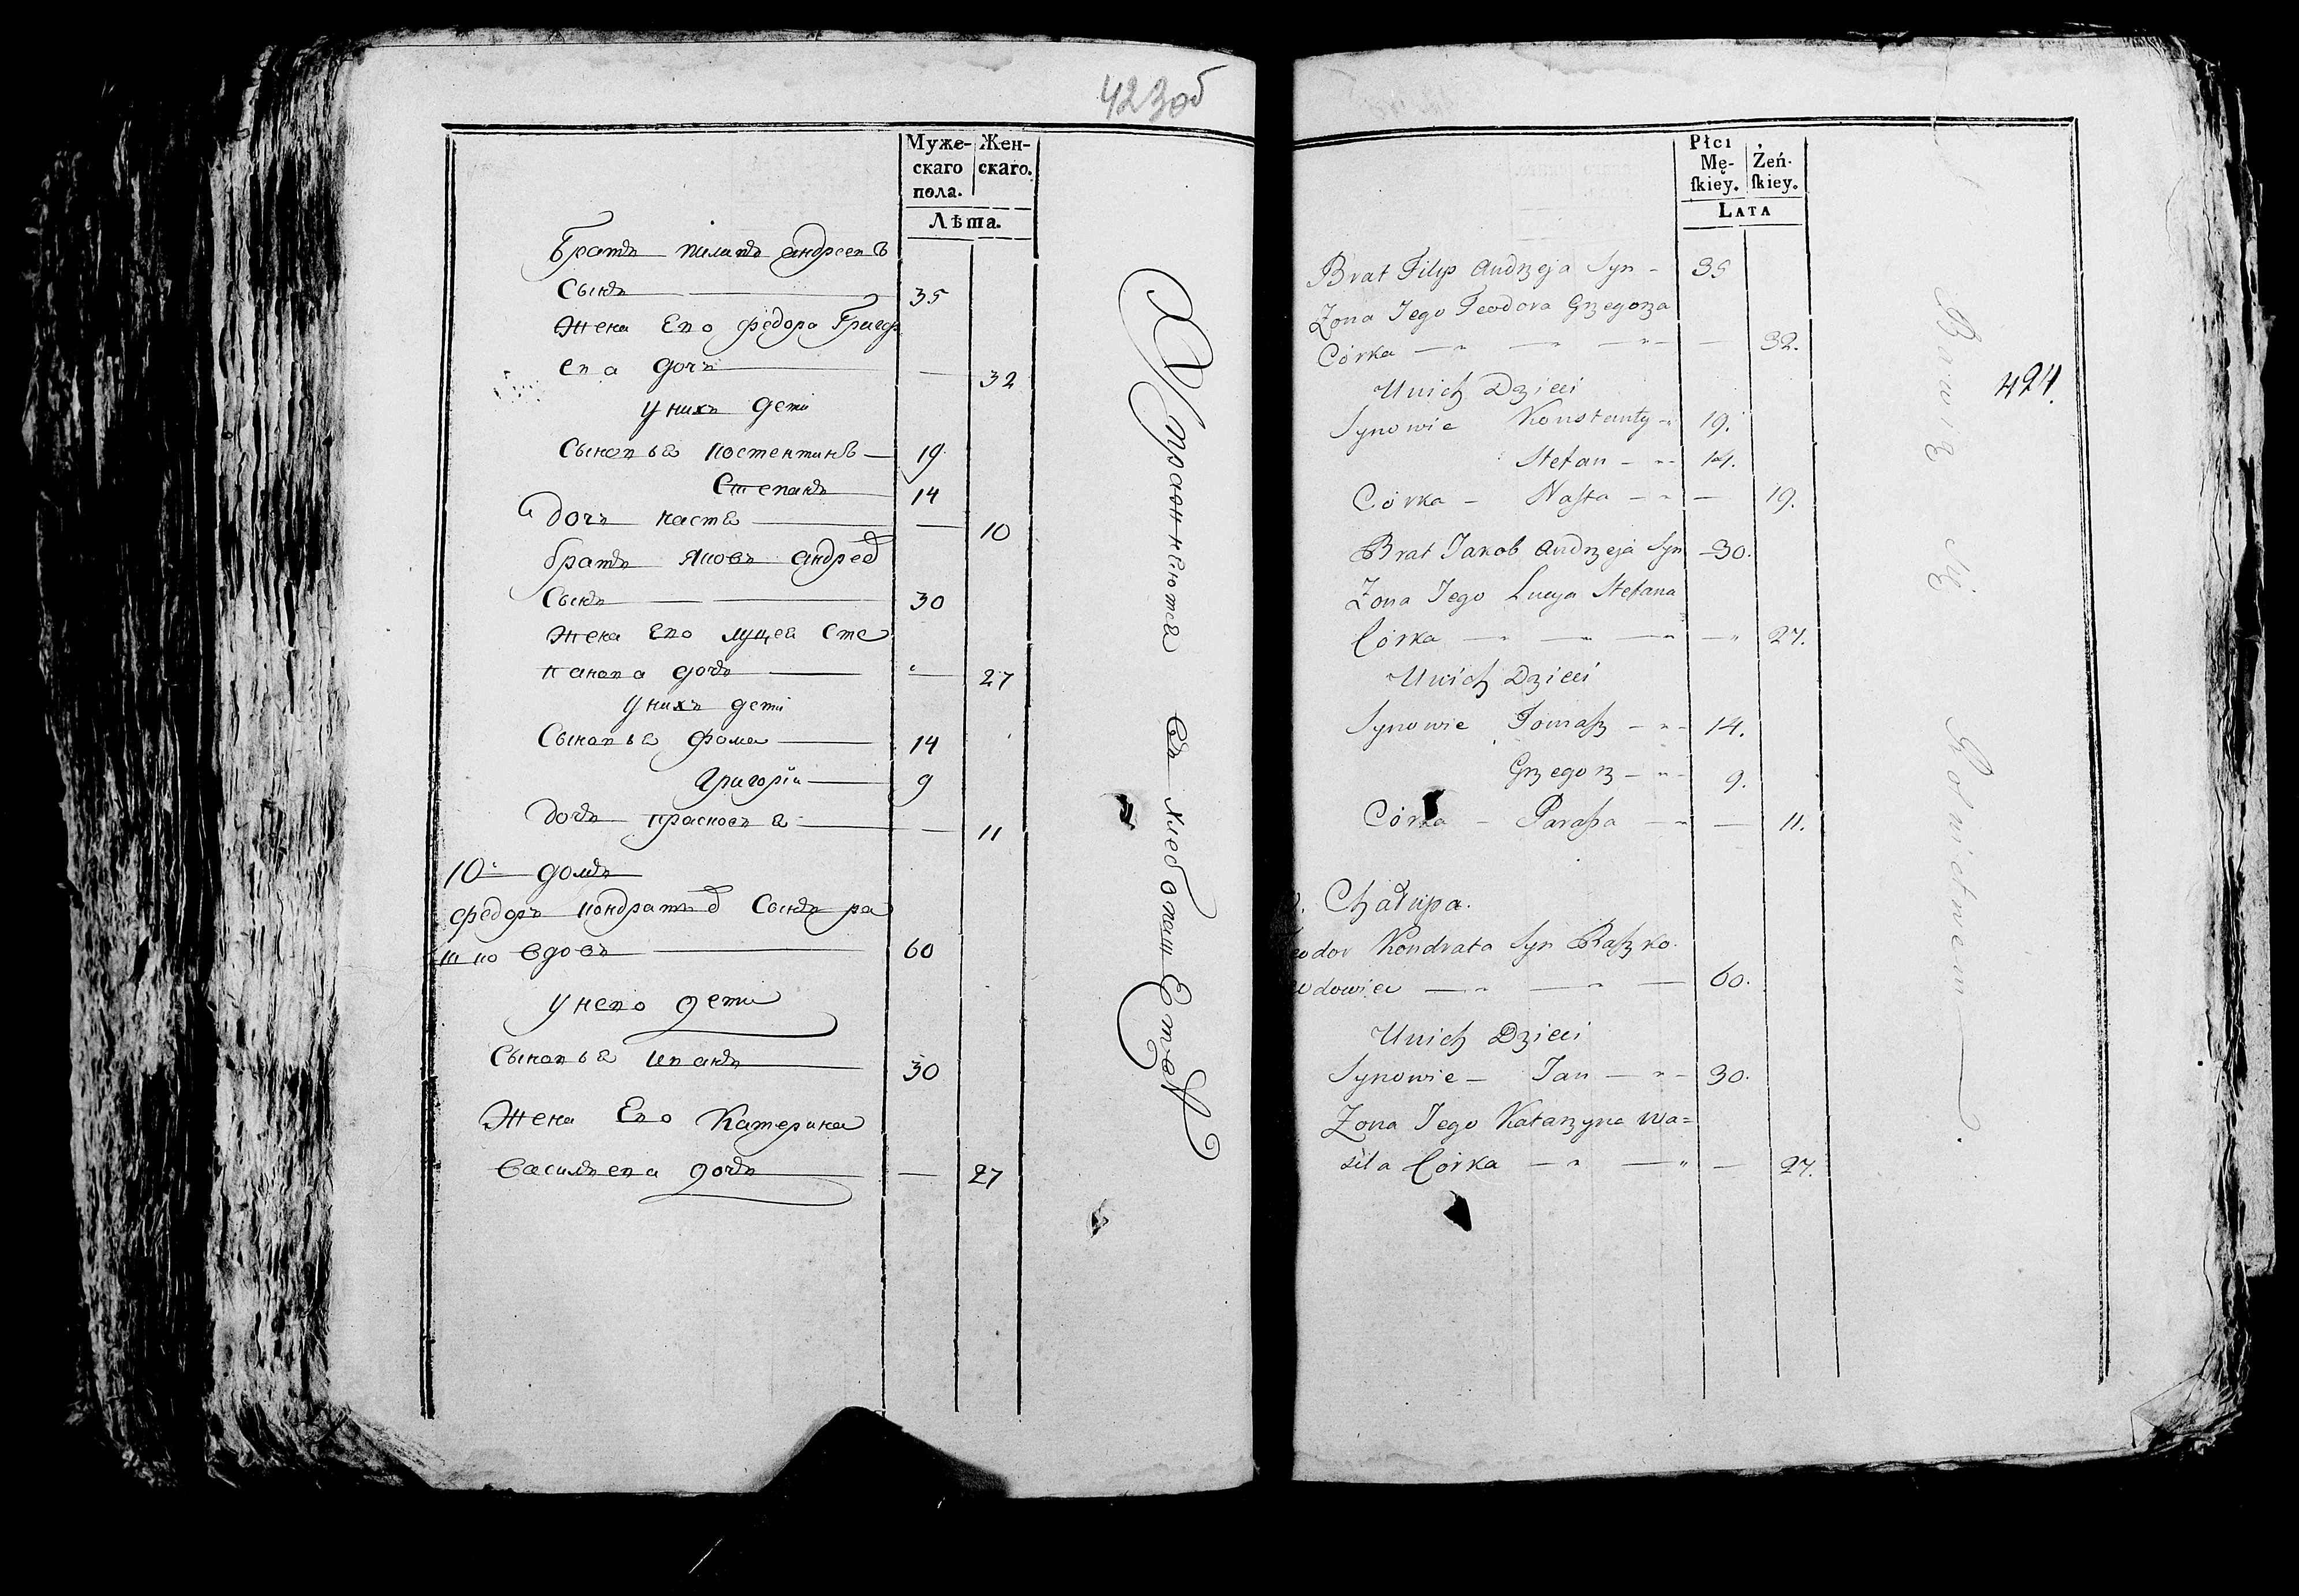 423об
Муже-
скаго
пола.
Жен-
скаго.
Лѣта.
Братъ Пилипъ Андреевъ
Сынъ 35
Жена Его Федора Григор
ева дочъ — 32
У нихъ дети
Сыновья Костентинъ — 19
Степанъ 14
дочъ Настя — 10
братъ Яковъ Андреев
Сынъ 30
Жена Его Луцея Сте
панова дочъ — 27
У нихъ дети
Сыновья Фома — 14
Григорiй — 9
дочъ Прасковья — 11
10 домъ
Федоръ Кондратьев Сынъ ра
шко вдовъ 60
У него дети
Сыновья Иванъ 30
Жена Его Катерина
Васильева дочъ — 27
Упражнеются Въ Хлебопашестве
Płci
Mę-
ſkiey.
Żeń-
ſkiey.
LATA
424.
Brat Filip Andrzeja Syn - 35
Zona Jego Teodora Grzegorza
Córka — — — 32.
Unich Dzieci
Synowie Konstanty - 19.
Stefan - 14.
Córka - Naſta - — 19.
Brat Jakob Andrzeja Syn - 30.
Zona Jego Lucya Stefana
Córka — — — 27.
Unich Dzieci
Synowie Tomaſz - 14.
Grzegorz - 9.
Córka - Paraſza - — 11.
Chałupa.
eodor Kondrata Syn Raſzko.
wdowiec — — — 60.
Unich Dzieci
Synowie - Jan - 30.
Zona Jego Katarzyna Wa=
sila Córka — — — 27.
Bawią się Rolnictwem